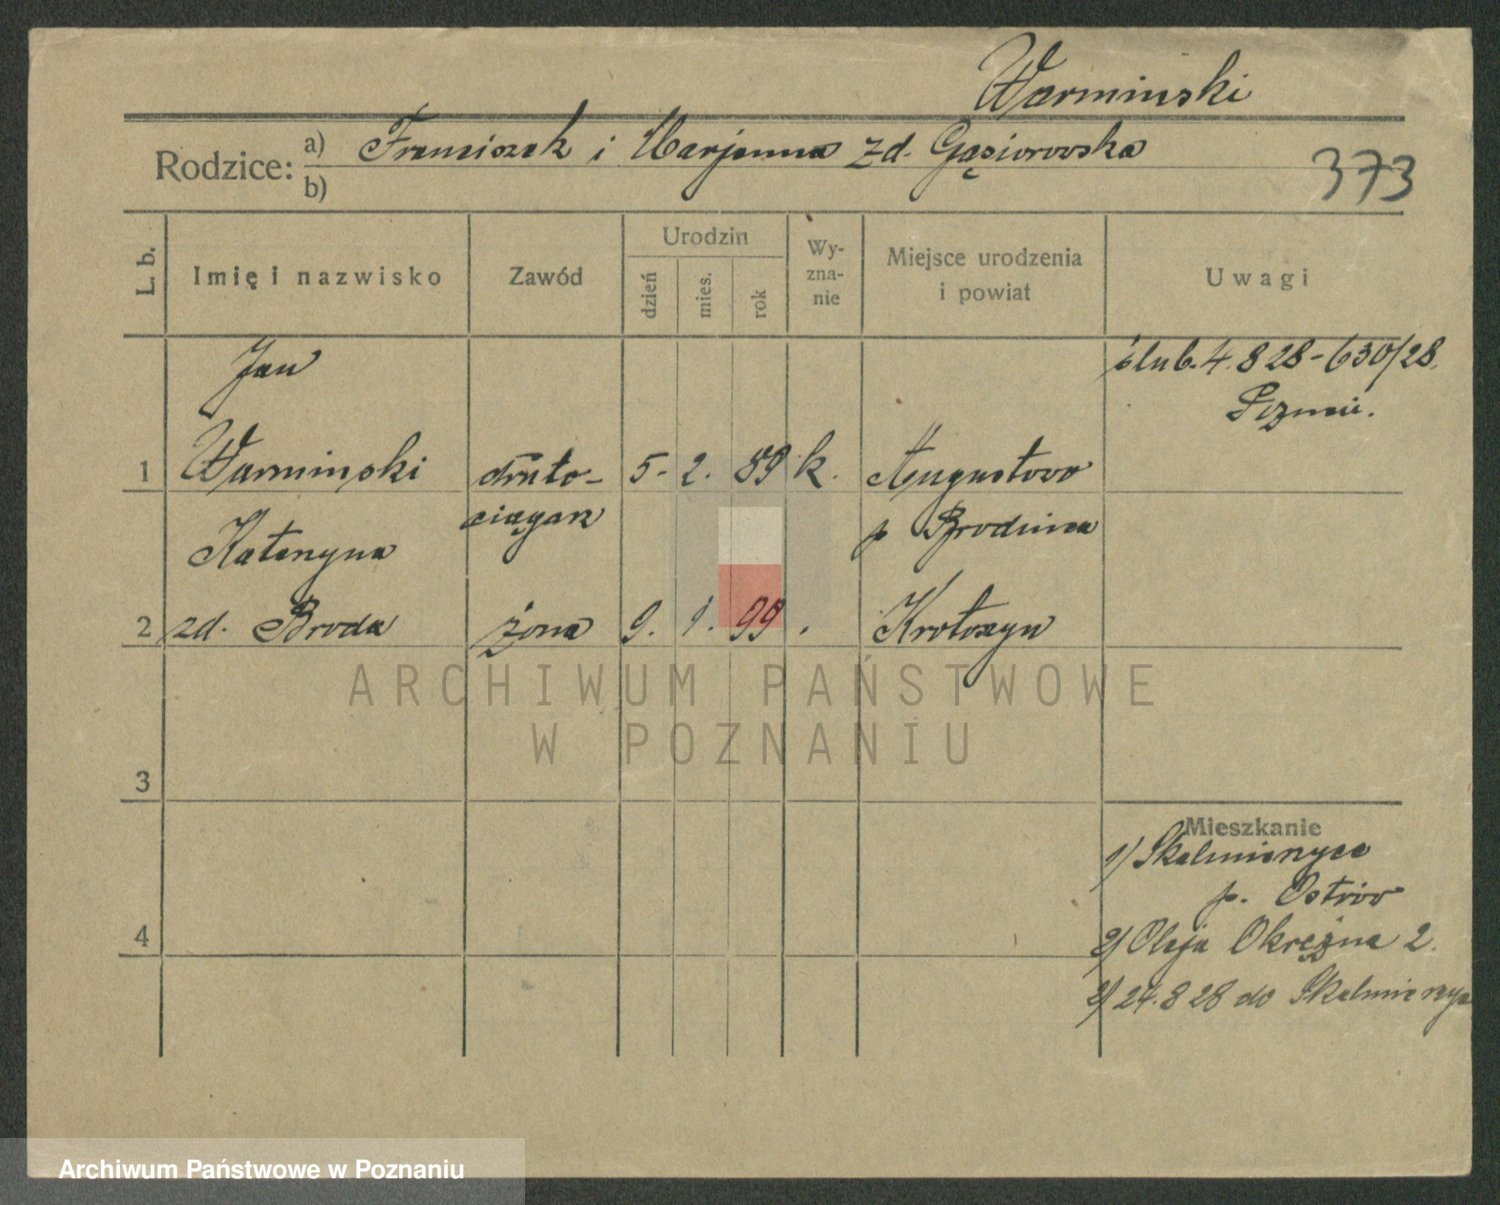 Warminski
Rodzice: a) Franciszek i Marjanna zd. Gąsiorowska
b)
373
L. b. Imię i nazwisko Zawód Urodzin dzień mies. rok Wyznanie Miejsce urodzenia i powiat Uwagi
Jan ślub. 4.8 28 - 630/28.
Poznań.
1 Warminski druto- 5. 2. 89 k. Augustowo
ciągarz p Brodnica
Katarzyna
2 zd. Broda żona 9. 1. 99 . Krotoszyn
ARCHIWUM PAŃSTWOWE
W POZNANIU
3
Mieszkanie
1) Skalmierzyce
p. Ostrów
4
2) Okrężna 2.
3) 24.8 28 do Skalmierzyc
Archiwum Państwowe w Poznaniu